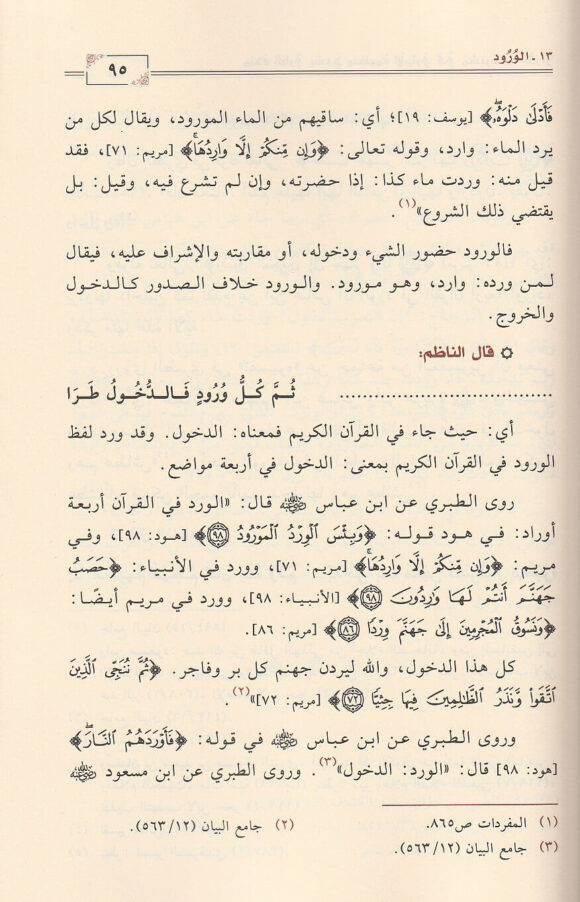 ١٣ - الوُرُود
٩٥
فَأَدْلَىٰ دَلْوَهُۥ﴾ [يوسف: ١٩]؛ أي: ساقيهم من الماء المورود، ويقال لكل من
يرد الماء: وارد، وقوله تعالى: ﴿وَإِن مِّنكُمْ إِلَّا وَارِدُهَا﴾ [مريم: ٧١]، فقد
قيل منه: وردت ماء كذا: إذا حضرته، وإن لم تشرع فيه، وقيل: بل
يقتضي ذلك الشروع»(١).
فالورود حضور الشيء ودخوله، أو مقاربته والإشراف عليه، فيقال
لمن ورده: وارد، وهو مورود. والورود خلاف الصدور كالدخول
والخروج.
۞ قال الناظم:
.................................... ثُمَّ كُلُّ وُرُودٍ فَالدُّخُولُ طَرَا
أي: حيث جاء في القرآن الكريم فمعناه: الدخول. وقد ورد لفظ
الورود في القرآن الكريم بمعنى: الدخول في أربعة مواضع.
روى الطبري عن ابن عباس ﷺ قال: «الورد في القرآن أربعة
أوراد: في هود قوله: ﴿وَبِئْسَ الْوِرْدُ الْمَوْرُودُ ٩٨﴾ [هود: ٩٨]، وفي
مريم: ﴿وَإِن مِّنكُمْ إِلَّا وَارِدُهَا﴾ [مريم: ٧١]، وورد في الأنبياء: ﴿حَصَبُ
جَهَنَّمَ أَنتُمْ لَهَا وَارِدُونَ ٩٨﴾ [الأنبياء: ٩٨]، وورد في مريم أيضًا:
﴿وَنَسُوقُ الْمُجْرِمِينَ إِلَىٰ جَهَنَّمَ وِرْدًا ٨٦﴾ [مريم: ٨٦].
كل هذا الدخول، والله ليردن جهنم كل بر وفاجر. ﴿ثُمَّ نُنَجِّي الَّذِينَ
اتَّقَوا وَّنَذَرُ الظَّالِمِينَ فِيهَا جِثِيًّا ٧٢﴾ [مريم: ٧٢]»(٢).
وروى الطبري عن ابن عباس ﷺ في قوله: ﴿فَأَوْرَدَهُمُ النَّارَ﴾
[هود: ٩٨] قال: «الورد: الدخول»(٣). وروى الطبري عن ابن مسعود ﷺ
(١) المفردات ص٨٦٥. (٢) جامع البيان (١٢/٥٦٣)
(٣) جامع البيان (١٢/٥٦٣).